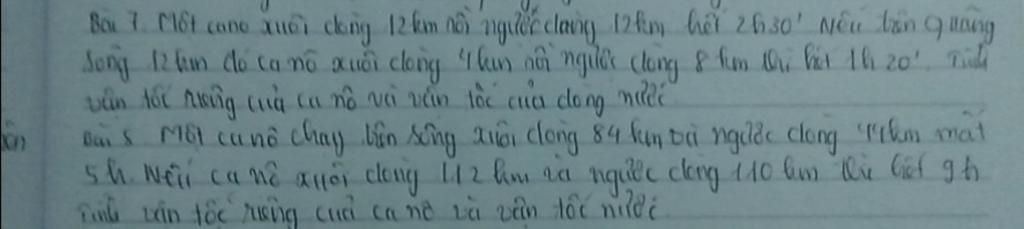 Bài 7. Một cano xuôi dòng 12km rồi ngược dòng 12km, hết 2h30' Nếu trên quãng
sông 12km đó ca nô xuôi dòng 4km rồi ngược dòng 8km thì hết 1h20'. Tính
vận tốc riêng của ca nô và vận tốc của dòng nước
Bài 8 Một ca nô chạy trên sông xuôi dòng 84km và ngược dòng 44km mất
5h. Nếu ca nô xuôi dòng 112km và ngược dòng 110km thì hết 9h
Tính vận tốc riêng của ca nô và vận tốc nước